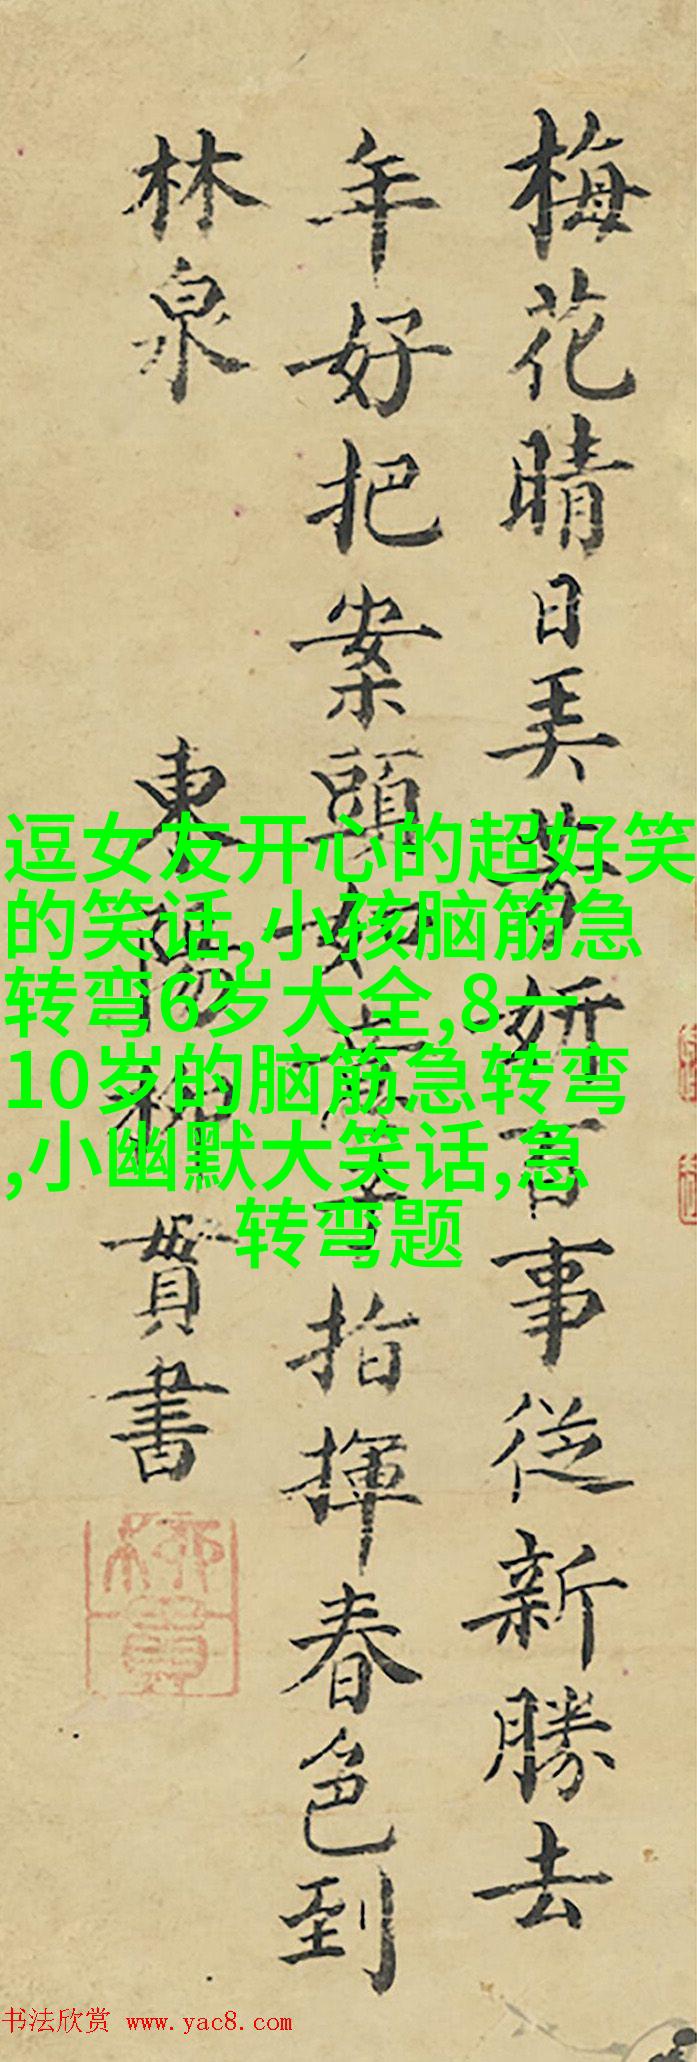 梅花晴日美芳妍百事從新勝去
年好把案頭如意指揮春色到
林泉
東陽柳貫書
柳貫
逗女友开心的超好笑
的笑话,小孩脑筋急
转弯6岁大全,8一
10岁的脑筋急转弯
,小幽默大笑话,急
转弯题
书法欣赏 www.yac8.com